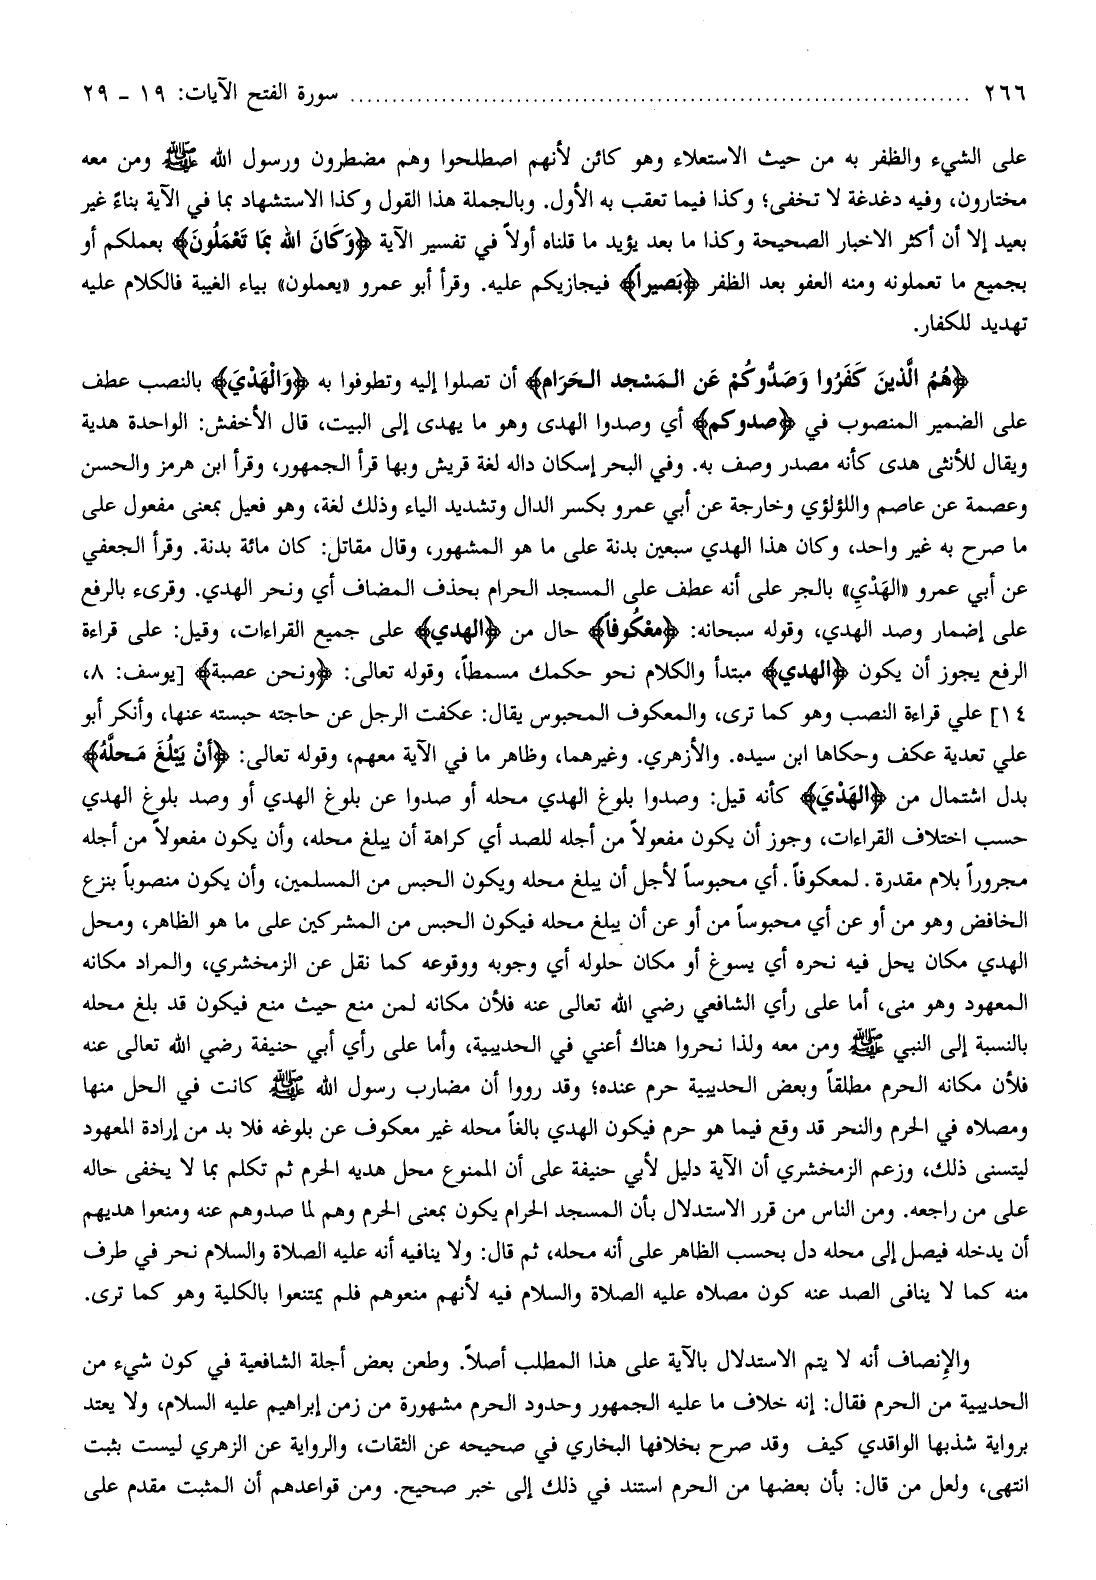 ٢٦٦ ........................................ سورة الفتح الآيات: ١٩ ـ ٢٩
على الشيء والظفر به من حيث الاستعلاء وهو كائن لأنهم اصطلحوا وهم مضطرون ورسول الله ﷺ ومن معه
مختارون، وفيه دغدغة لا تخفى؛ وكذا فيما تعقب به الأول. وبالجملة هذا القول وكذا الاستشهاد بما في الآية بناءً غير
بعيد إلا أن أكثر الاخبار الصحيحة وكذا ما بعد يؤيد ما قلناه أولاً في تفسير الآية ﴿وَكَانَ الله بِمَا تَعْمَلُونَ﴾ بعملكم أو
بجميع ما تعملونه ومنه العفو بعد الظفر ﴿بَصيراً﴾ فيجازيكم عليه. وقرأ أبو عمرو «يعملون» بياء الغيبة فالكلام عليه
تهديد للكفار.
﴿هُمُ الَّذينَ كَفَرُوا وَصَدُّوكُمْ عَن الـمَسْجد الـحَرَام﴾ أن تصلوا إليه وتطوفوا به ﴿وَالْهَدْيَ﴾ بالنصب عطف
على الضمير المنصوب في ﴿صدوكم﴾ أي وصدوا الهدى وهو ما يهدى إلى البيت، قال الأخفش: الواحدة هدية
ويقال للأنثى هدى كأنه مصدر وصف به. وفي البحر إسكان داله لغة قريش وبها قرأ الجمهور، وقرأ ابن هرمز والحسن
وعصمة عن عاصم واللؤلؤي وخارجة عن أبي عمرو بكسر الدال وتشديد الياء وذلك لغة، وهو فعيل بمعنى مفعول على
ما صرح به غير واحد، وكان هذا الهدي سبعين بدنة على ما هو المشهور، وقال مقاتل: كان مائة بدنة. وقرأ الجعفي
عن أبي عمرو «الهَدْيِ» بالجر على أنه عطف على المسجد الحرام بحذف المضاف أي ونحر الهدي. وقرىء بالرفع
على إضمار وصد الهدي، وقوله سبحانه: ﴿مَعْكُوفاً﴾ حال من ﴿الهدي﴾ على جميع القراءات، وقيل: على قراءة
الرفع يجوز أن يكون ﴿الهدي﴾ مبتدأ والكلام نحو حكمك مسمطاً، وقوله تعالى: ﴿ونحن عصبة﴾ [يوسف: ٨،
١٤] علي قراءة النصب وهو كما ترى، والمعكوف المحبوس يقال: عكفت الرجل عن حاجته حبسته عنها، وأنكر أبو
علي تعدية عكف وحكاها ابن سيده. والأزهري. وغيرهما، وظاهر ما في الآية معهم، وقوله تعالى: ﴿أَنْ يَبْلُغَ مَـحلَّهُ﴾
بدل اشتمال من ﴿الهَدْيَ﴾ كأنه قيل: وصدوا بلوغ الهدي محله أو صدوا عن بلوغ الهدي أو وصد بلوغ الهدي
حسب اختلاف القراءات، وجوز أن يكون مفعولاً من أجله للصد أي كراهة أن يبلغ محله، وأن يكون مفعولاً من أجله
مجروراً بلام مقدرة ـ لمعكوفاً ـ أي محبوساً لأجل أن يبلغ محله ويكون الحبس من المسلمين، وأن يكون منصوباً بنزع
الخافض وهو من أو عن أي محبوساً من أو عن أن يبلغ محله فيكون الحبس من المشركين على ما هو الظاهر، ومحل
الهدي مكان يحل فيه نحره أي يسوغ أو مكان حلوله أي وجوبه ووقوعه كما نقل عن الزمخشري، والمراد مكانه
المعهود وهو منى، أما على رأي الشافعي رضي الله تعالى عنه فلأن مكانه لمن منع حيث منع فيكون قد بلغ محله
بالنسبة إلى النبي ﷺ ومن معه ولذا نحروا هناك أعني في الحديبية، وأما على رأي أبي حنيفة رضي الله تعالى عنه
فلأن مكانه الحرم مطلقاً وبعض الحديبية حرم عنده؛ وقد رووا أن مضارب رسول الله ﷺ كانت في الحل منها
ومصلاه في الحرم والنحر قد وقع فيما هو حرم فيكون الهدي بالغاً محله غير معكوف عن بلوغه فلا بد من إرادة المعهود
ليتسنى ذلك، وزعم الزمخشري أن الآية دليل لأبي حنيفة على أن الممنوع محل هديه الحرم ثم تكلم بما لا يخفى حاله
على من راجعه. ومن الناس من قرر الاستدلال بأن المسجد الحرام يكون بمعنى الحرم وهم لما صدوهم عنه ومنعوا هديهم
أن يدخله فيصل إلى محله دل بحسب الظاهر على أنه محله، ثم قال: ولا ينافيه أنه عليه الصلاة والسلام نحر في طرف
منه كما لا ينافى الصد عنه كون مصلاه عليه الصلاة والسلام فيه لأنهم منعوهم فلم يمتنعوا بالكلية وهو كما ترى.
والإِنصاف أنه لا يتم الاستدلال بالآية على هذا المطلب أصلاً. وطعن بعض أجلة الشافعية في كون شيء من
الحديبية من الحرم فقال: إنه خلاف ما عليه الجمهور وحدود الحرم مشهورة من زمن إبراهيم عليه السلام، ولا يعتد
برواية شذبها الواقدي كيف وقد صرح بخلافها البخاري في صحيحه عن الثقات، والرواية عن الزهري ليست بثبت
انتهى، ولعل من قال: بأن بعضها من الحرم استند في ذلك إلى خبر صحيح. ومن قواعدهم أن المثبت مقدم على